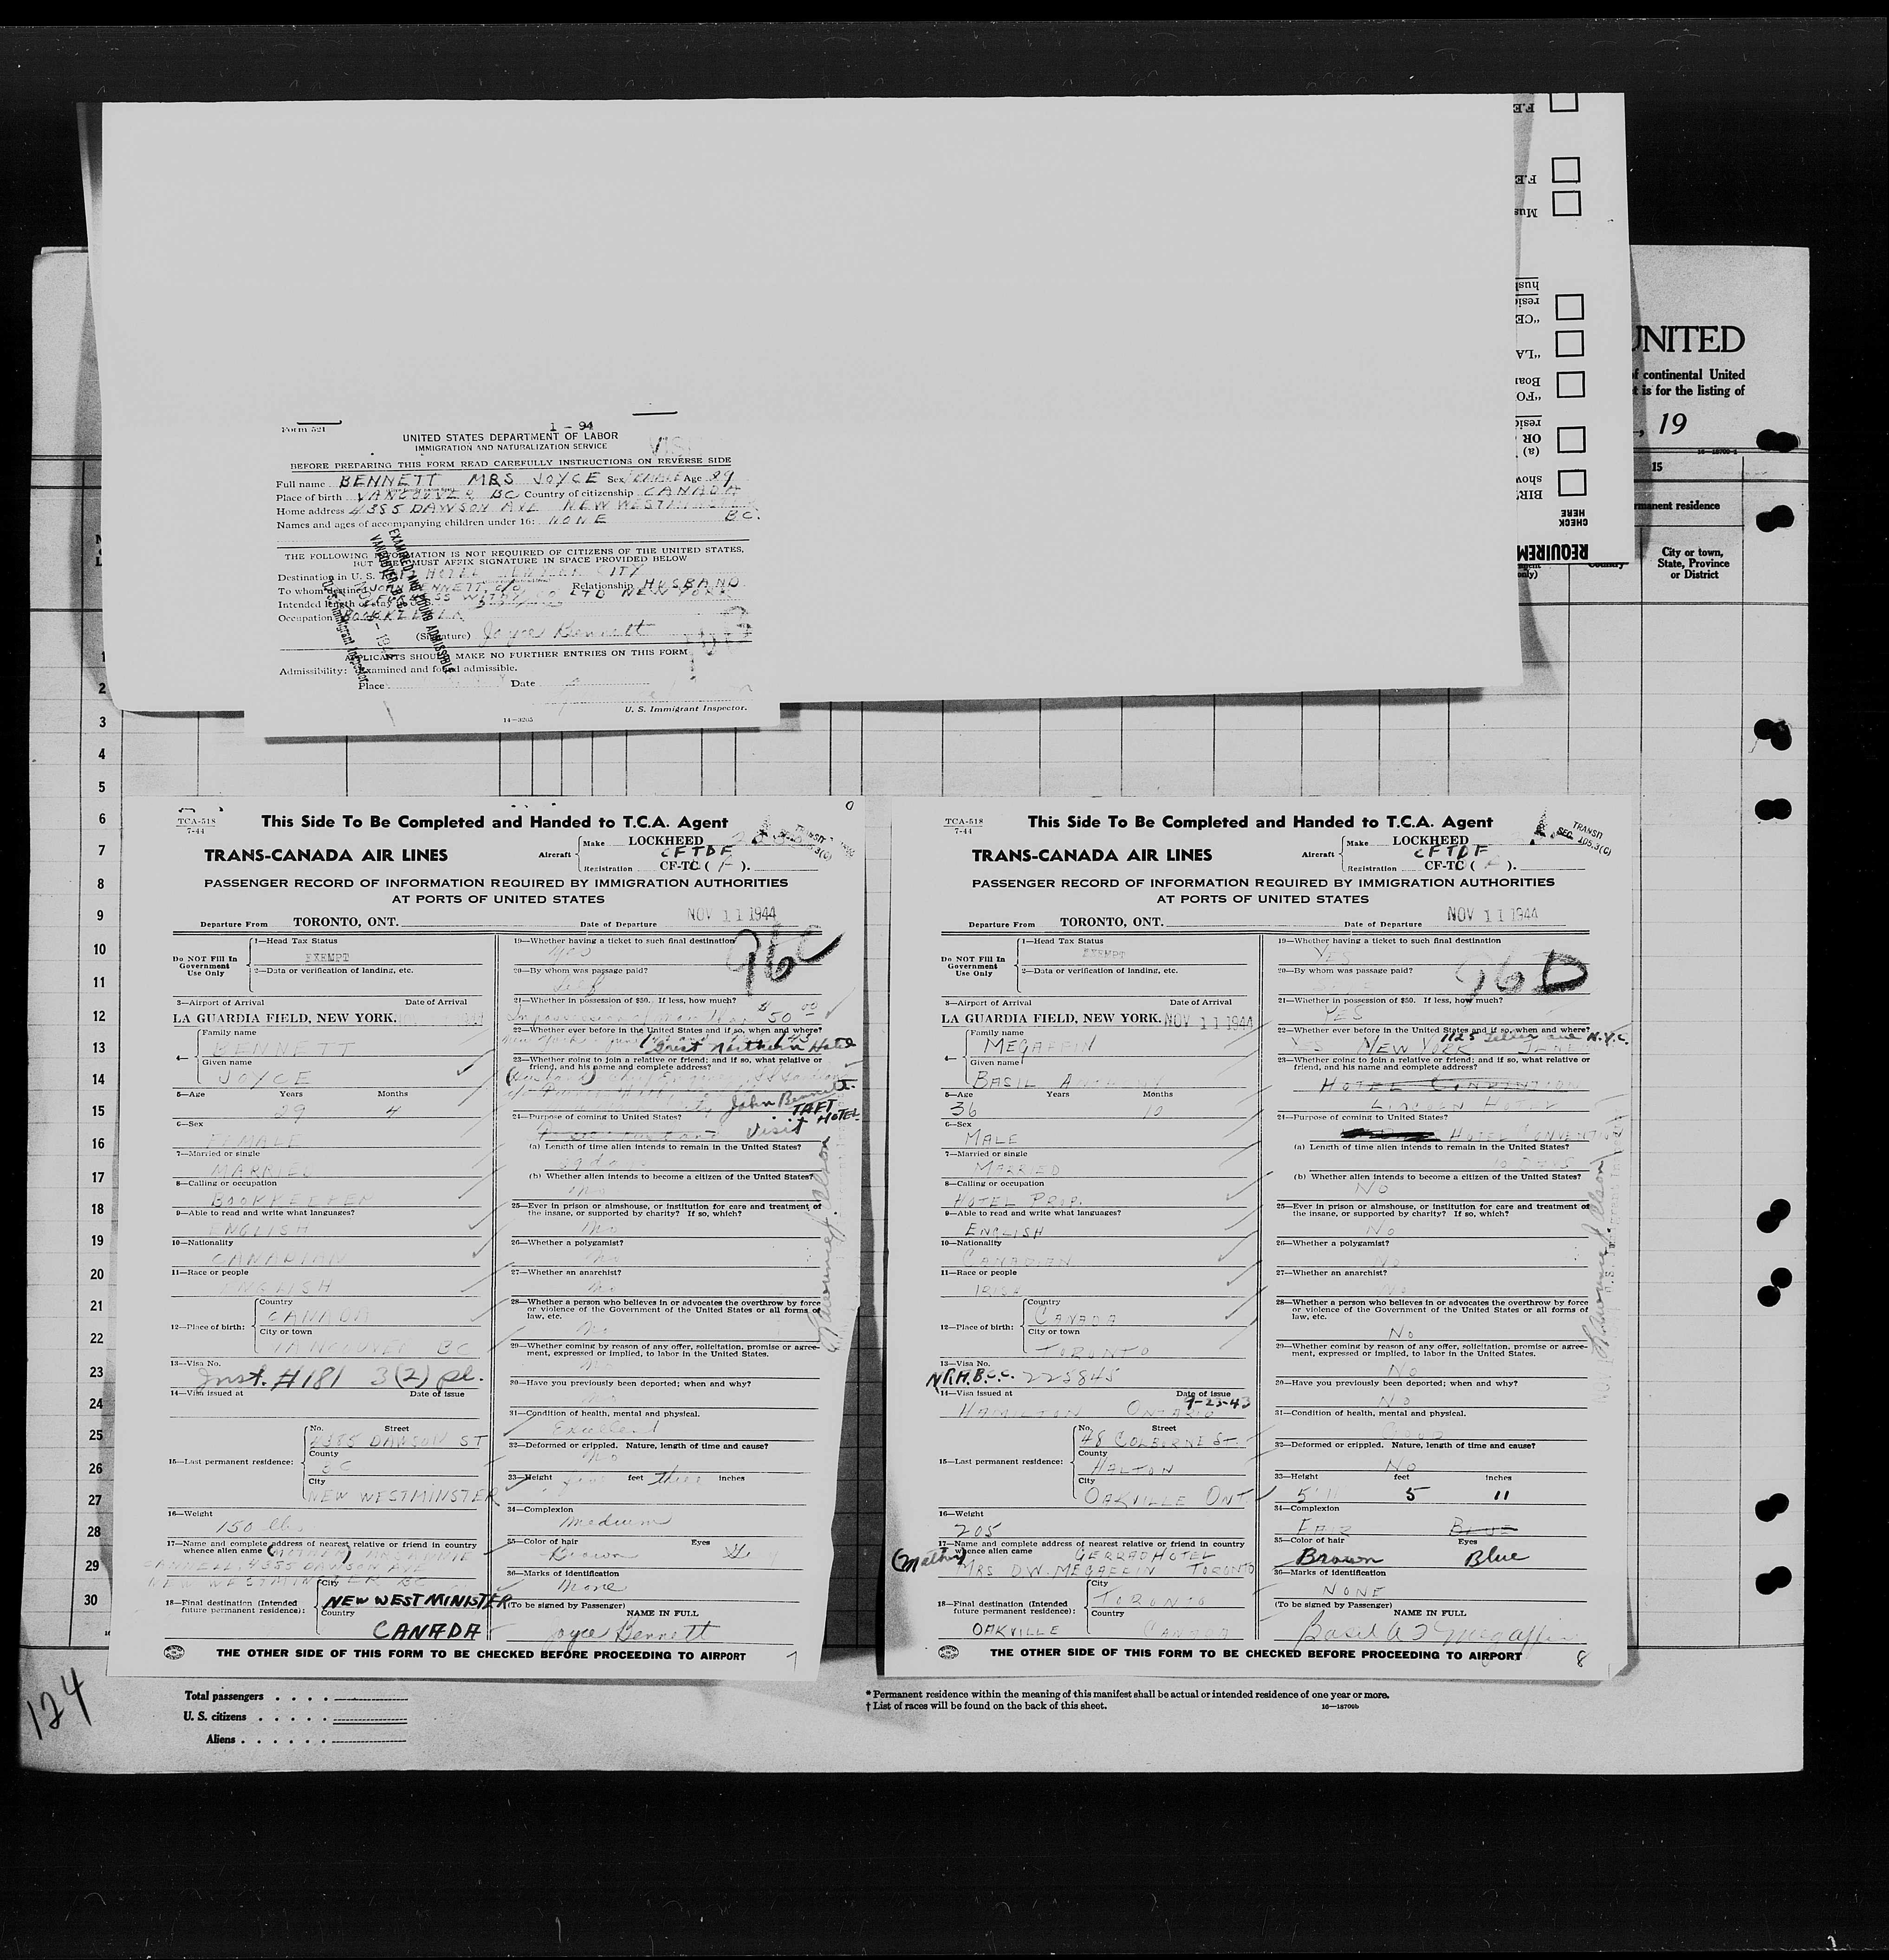 UNITED
of continental United
is for the listing of
, 19
15
City or town,
State, Province
or District
REQUIREM
CHECK
HERE
Form 521
1 - 94
UNITED STATES DEPARTMENT OF LABOR
IMMIGRATION AND NATURALIZATION SERVICE
BEFORE PREPARING THIS FORM READ CAREFULLY INSTRUCTIONS ON REVERSE SIDE
Full name BENNETT MRS JOYCE Sex FEMALE Age 29
Place of birth VANCOUVER BC Country of citizenship CANADA
Home address 4385 DAWSON AVE NEW WESTMINSTER
Names and ages of accompanying children under 16: NONE BC.
THE FOLLOWING INFORMATION IS NOT REQUIRED OF CITIZENS OF THE UNITED STATES,
BUT THEY MUST AFFIX SIGNATURE IN SPACE PROVIDED BELOW
Destination in U. S. HOTEL CITY
To whom destined JOHN BENNETT, C/O Relationship HUSBAND
Intended length of stay LTD NEW YORK
Occupation BOOKKEEPER
(Signature) Joyce Bennett
APPLICANTS SHOULD MAKE NO FURTHER ENTRIES ON THIS FORM
Admissibility: Examined and found admissible.
Place Date
U. S. Immigrant Inspector.
14-3205
EXAMINED AND FOUND ADMISSIBLE
VANCOUVER, B.C.
U.S. Immigrant Inspector
1
2
3
4
5
6
7
8
9
10
11
12
13
14
15
16
17
18
19
20
21
22
23
24
25
26
27
28
29
30
TCA-518
7-44
This Side To Be Completed and Handed to T.C.A. Agent
TRANS-CANADA AIR LINES
Aircraft Make LOCKHEED
CFTDF
Registration CF-TC ( ).
TRANSIT
PASSENGER RECORD OF INFORMATION REQUIRED BY IMMIGRATION AUTHORITIES
AT PORTS OF UNITED STATES
Departure From TORONTO, ONT. Date of Departure NOV 11 1944
Do NOT Fill In
Government
Use Only
1—Head Tax Status
EXEMPT
2—Data or verification of landing, etc.
3—Airport of Arrival Date of Arrival
LA GUARDIA FIELD, NEW YORK.
4— Family name
BENNETT
Given name
JOYCE
5—Age Years Months
29 4
6—Sex
FEMALE
7—Married or single
MARRIED
8—Calling or occupation
BOOKKEEPER
9—Able to read and write what languages?
ENGLISH
10—Nationality
CANADIAN
11—Race or people
ENGLISH
12—Place of birth: Country
CANADA
City or town
VANCOUVER BC
13—Visa No.
Inst. #181 3(2) pl.
14—Visa issued at Date of issue
15—Last permanent residence: No. Street
4385 DAWSON ST
County
BC
City
NEW WESTMINSTER
16—Weight
150 lbs
17—Name and complete address of nearest relative or friend in country
whence alien came (MOTHER)
4385 DAWSON AVE
NEW WESTMINSTER BC
18—Final destination (Intended
future permanent residence): City
NEW WESTMINISTER
Country
CANADA
19—Whether having a ticket to such final destination
yes
96C
20—By whom was passage paid?
Self
21—Whether in possession of $50. If less, how much?
In possession of more than $50.00
22—Whether ever before in the United States and if so, when and where?
New York
Great Northern Hotel
23—Whether going to join a relative or friend; and if so, what relative or
friend, and his name and complete address?
(husband) Chief Engineer
John Bennett
TAFT
HOTEL
24—Purpose of coming to United States?
Visit
(a) Length of time alien intends to remain in the United States?
(b) Whether alien intends to become a citizen of the United States?
no
25—Ever in prison or almshouse, or institution for care and treatment of
the insane, or supported by charity? If so, which?
No
26—Whether a polygamist?
No
27—Whether an anarchist?
No
28—Whether a person who believes in or advocates the overthrow by force
or violence of the Government of the United States or all forms of
law, etc.
No
29—Whether coming by reason of any offer, solicitation, promise or agree-
ment, expressed or implied, to labor in the United States.
No
30—Have you previously been deported; when and why?
No
31—Condition of health, mental and physical.
Excellent
32—Deformed or crippled. Nature, length of time and cause?
No
33—Height five feet three inches
34—Complexion
Medium
35—Color of hair Eyes
Brown
36—Marks of identification
None
(To be signed by Passenger) NAME IN FULL
Joyce Bennett
THE OTHER SIDE OF THIS FORM TO BE CHECKED BEFORE PROCEEDING TO AIRPORT
7
TCA-518
7-44
This Side To Be Completed and Handed to T.C.A. Agent
TRANS-CANADA AIR LINES
Aircraft Make LOCKHEED
CFTDF
Registration CF-TC ( ).
TRANSIT
SEC. 105.3(C)
PASSENGER RECORD OF INFORMATION REQUIRED BY IMMIGRATION AUTHORITIES
AT PORTS OF UNITED STATES
Departure From TORONTO, ONT. Date of Departure NOV 11 1944
Do NOT Fill In
Government
Use Only
1—Head Tax Status
EXEMPT
2—Data or verification of landing, etc.
3—Airport of Arrival Date of Arrival
LA GUARDIA FIELD, NEW YORK. NOV 11 1944
4— Family name
MEGAFFIN
Given name
BASIL
5—Age Years Months
36 10
6—Sex
MALE
7—Married or single
MARRIED
8—Calling or occupation
HOTEL PROP.
9—Able to read and write what languages?
ENGLISH
10—Nationality
CANADIAN
11—Race or people
IRISH
12—Place of birth: Country
CANADA
City or town
TORONTO
13—Visa No.
N.R.H.B.C.C. 225845
14—Visa issued at Date of issue
HAMILTON ONTARIO 9-23-43
15—Last permanent residence: No. Street
48 COLBORNE ST.
County
HALTON
City
OAKVILLE ONT.
16—Weight
205
17—Name and complete address of nearest relative or friend in country
whence alien came GERRAD HOTEL
(Mother) MRS D.W. MEGAFFIN TORONTO
18—Final destination (Intended
future permanent residence): City
TORONTO
Country
OAKVILLE CANADA
19—Whether having a ticket to such final destination
YES
96D
20—By whom was passage paid?
21—Whether in possession of $50. If less, how much?
YES
22—Whether ever before in the United States and if so, when and where?
YES NEW YORK JUNE
N.Y.C.
23—Whether going to join a relative or friend; and if so, what relative or
friend, and his name and complete address?
HOTEL CONVENTION
LINCOLN HOTEL
24—Purpose of coming to United States?
HOTEL CONVENTION
(a) Length of time alien intends to remain in the United States?
10 DAYS
(b) Whether alien intends to become a citizen of the United States?
NO
25—Ever in prison or almshouse, or institution for care and treatment of
the insane, or supported by charity? If so, which?
NO
26—Whether a polygamist?
NO
27—Whether an anarchist?
NO
28—Whether a person who believes in or advocates the overthrow by force
or violence of the Government of the United States or all forms of
law, etc.
NO
29—Whether coming by reason of any offer, solicitation, promise or agree-
ment, expressed or implied, to labor in the United States.
NO
30—Have you previously been deported; when and why?
NO
31—Condition of health, mental and physical.
GOOD
32—Deformed or crippled. Nature, length of time and cause?
NO
33—Height feet inches
5'11 5 11
34—Complexion
FAIR BLUE
35—Color of hair Eyes
Brown Blue
36—Marks of identification
NONE
(To be signed by Passenger) NAME IN FULL
Basil A Megaffin
THE OTHER SIDE OF THIS FORM TO BE CHECKED BEFORE PROCEEDING TO AIRPORT
8
124
Total passengers
U. S. citizens
Aliens
* Permanent residence within the meaning of this manifest shall be actual or intended residence of one year or more.
† List of races will be found on the back of this sheet.